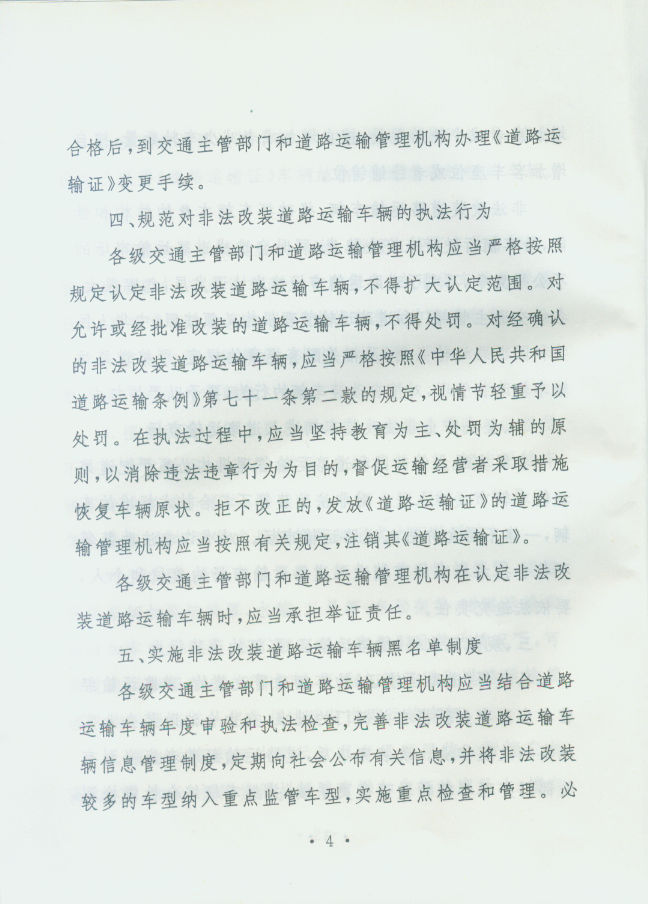 合格后,到交通主管部门和道路运输管理机构办理《道路运
输证》变更手续。
四、规范对非法改装道路运输车辆的执法行为
各级交通主管部门和道路运输管理机构应当严格按照
规定认定非法改装道路运输车辆,不得扩大认定范围。对
允许或经批准改装的道路运输车辆,不得处罚。对经确认
的非法改装道路运输车辆,应当严格按照《中华人民共和国
道路运输条例》第七十一条第二款的规定,视情节轻重予以
处罚。在执法过程中,应当坚持教育为主、处罚为辅的原
则,以消除违法违章行为为目的,督促运输经营者采取措施
恢复车辆原状。拒不改正的,发放《道路运输证》的道路运
输管理机构应当按照有关规定,注销其《道路运输证》。
各级交通主管部门和道路运输管理机构在认定非法改
装道路运输车辆时,应当承担举证责任。
五、实施非法改装道路运输车辆黑名单制度
各级交通主管部门和道路运输管理机构应当结合道路
运输车辆年度审验和执法检查,完善非法改装道路运输车
辆信息管理制度,定期向社会公布有关信息,并将非法改装
较多的车型纳入重点监管车型,实施重点检查和管理。必
· 4 ·